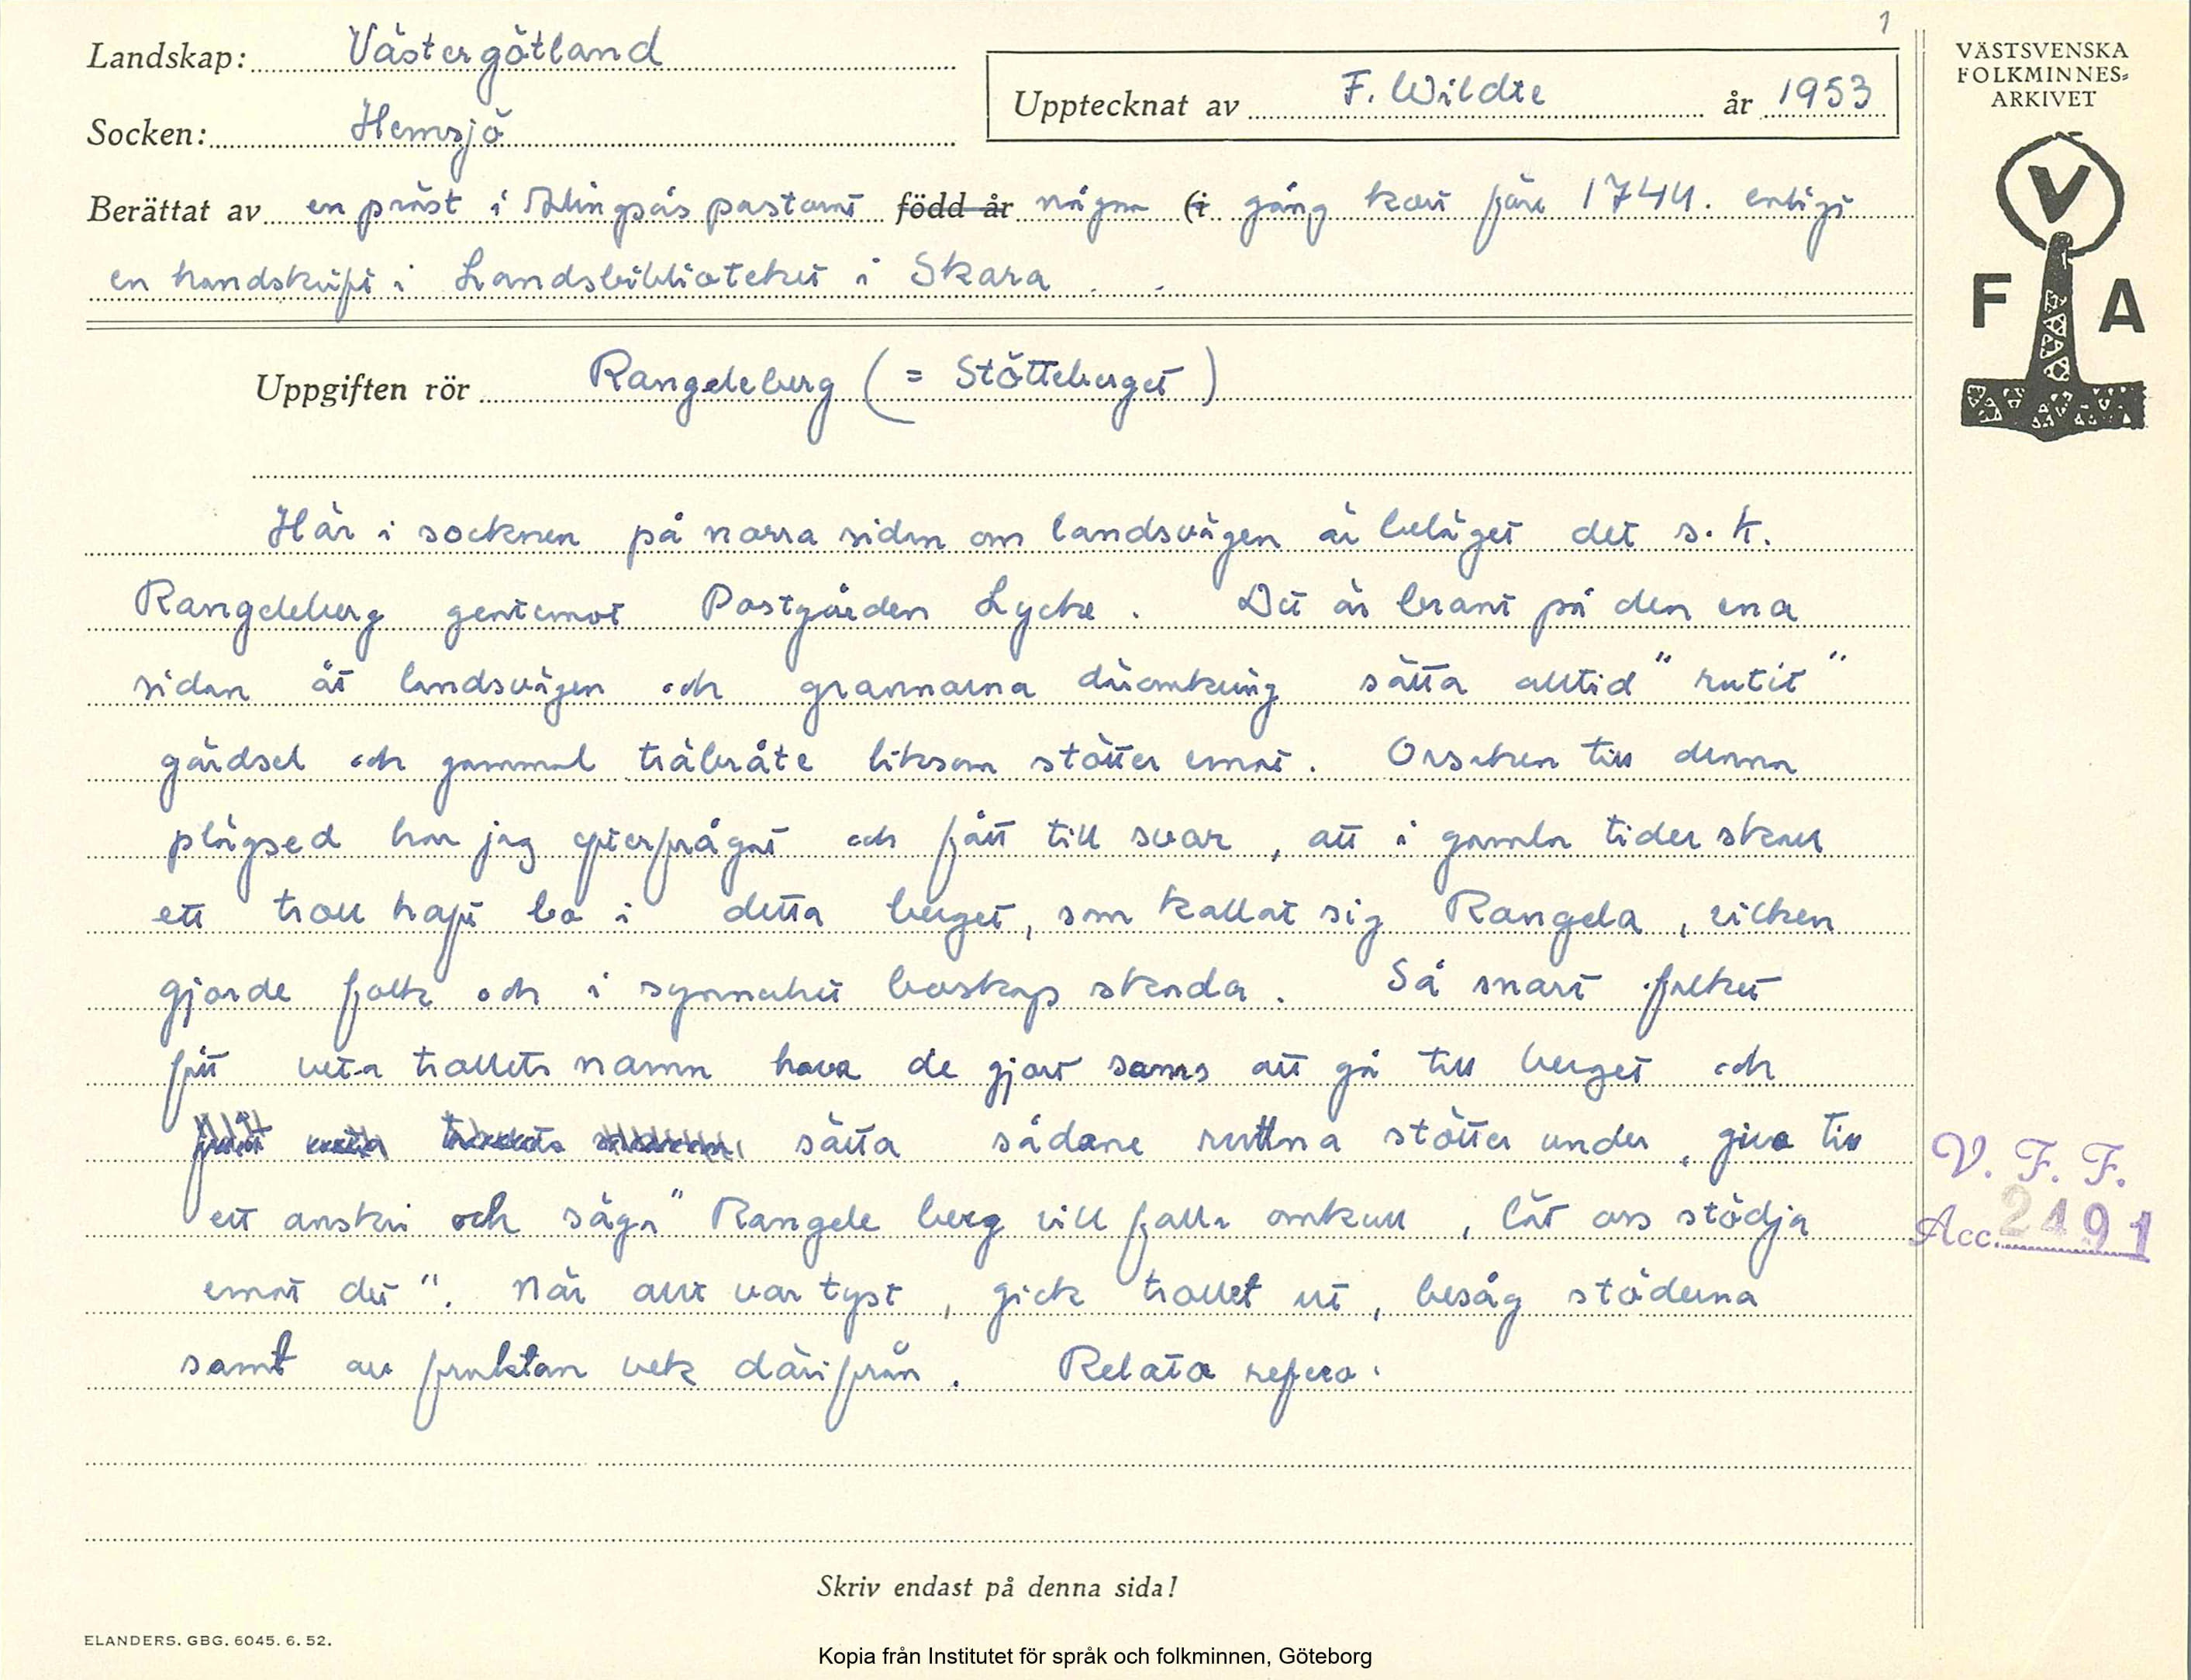 1
Landskap: Västergötland
Socken: Hemsjö
Upptecknat av F. Wildte år 1953
Berättat av en präst i Alingsås pastorat född år någon (i gång kort före 1744. enligt
en handskrift i Landsbiblioteket i Skara
Uppgiften rör Rangdeberg (= Stötteberget)
Här i socknen på norra sidan om landsvägen är beläget det s.k.
Rangdeberg gentemot Postgården Lycke. Det är brant på den ena
sidan åt landsvägen och grannarna däromkring sätta alltid "rutit"
gärdsel och gammal träbråte liksom stötter emot. Orsaken till denna
plägsed har jag efterfrågat och fått till svar, att i gamla tider skall
ett troll haft bo i detta berget, som kallat sig Rangela, vilken
gjorde folk och i synnerhet boskap skada. Så snart folket
fått veta trollets namn hava de gjort sams att gå till berget och
fått veta trollets namn sätta sådane ruttna stötter under, giva till
ett anskri och säga "Rangele berg vill falla omkull, låt oss stödja
emot det". När allt var tyst, gick trollet ut, besåg stöderna
samt av fruktan vek därifrån. Relata refero.
Skriv endast på denna sida!
ELANDERS. GBG. 6045. 6. 52.
Kopia från Institutet för språk och folkminnen, Göteborg
VÄSTSVENSKA
FOLKMINNES=
ARKIVET
V
F A
V. F. F.
Acc. 2491